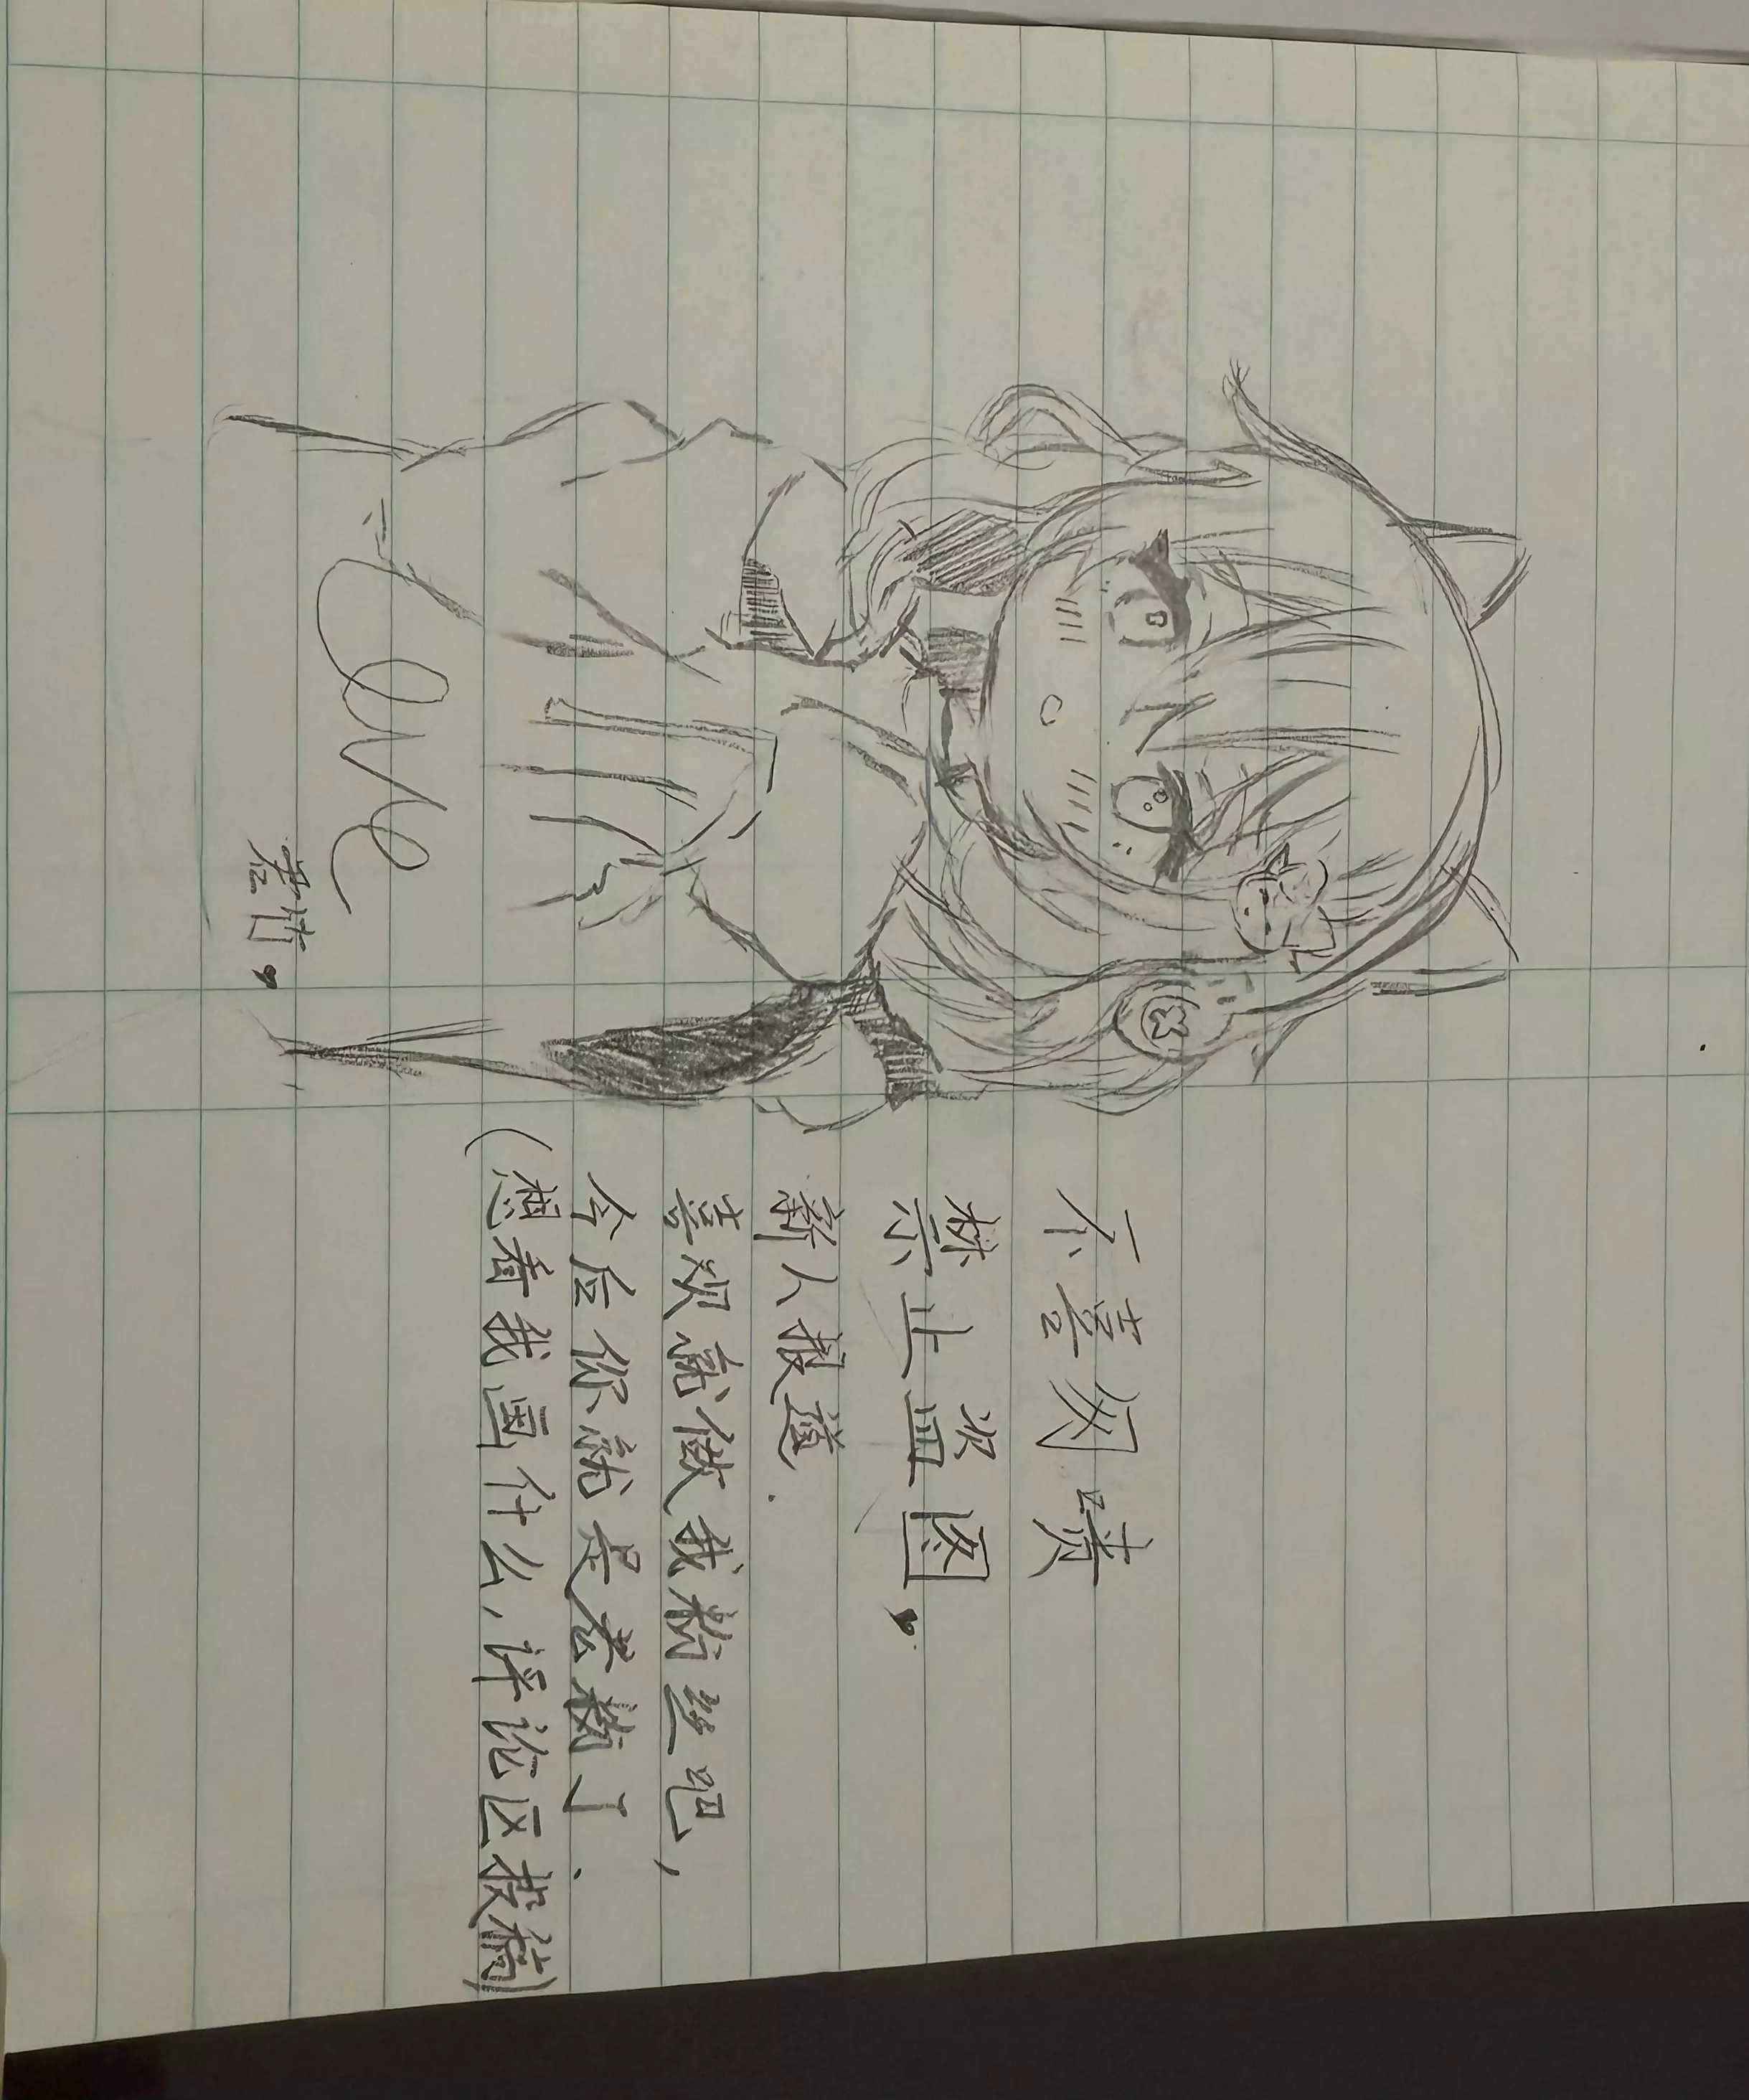 不喜勿喷
禁止盗图
新人报道.
喜欢就做我粉丝吧,
今后你就是老粉了.
(想看我画什么,评论区投稿)